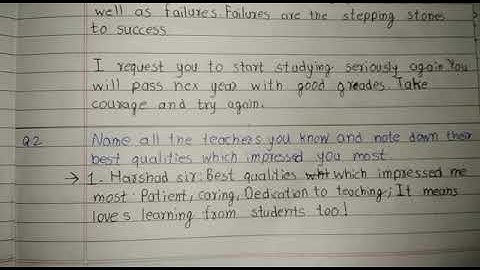 well as failures. Failures are the stepping stones
to success
I request you to start studying seriously again. You
will pass nex year with good greades. Take
courage and try again.
Q2 Name all the teachers you know and note down their
best qualities which impressed you most
→ 1. Harshad sir: Best qualities which impressed me
most. Patient, caring, Dedication to teaching; It means
loves learning from students too!